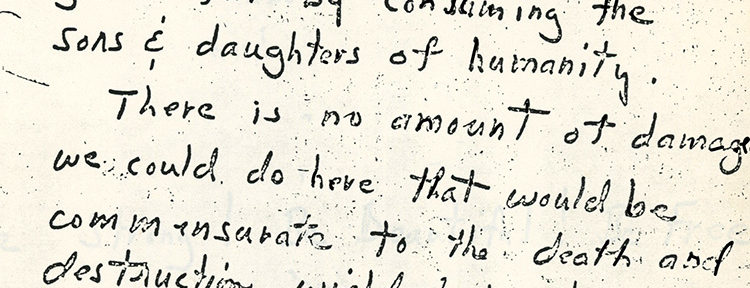 by consuming the
sons & daughters of humanity.
There is no amount of damage
we could do here that would be
commensurate to the death and
destruction